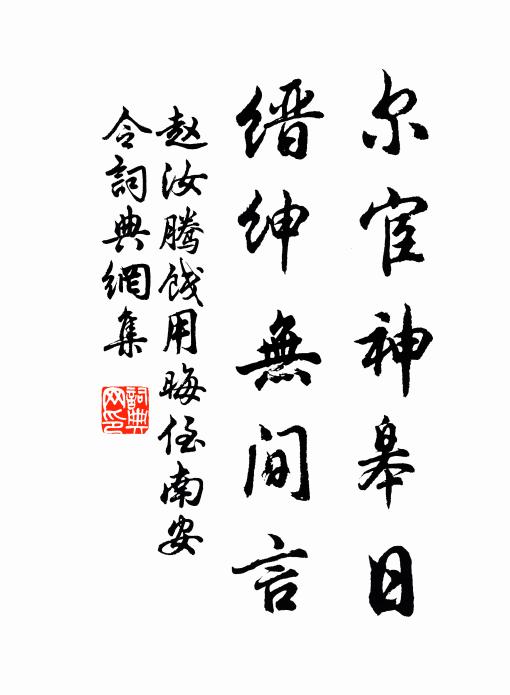 尔宦神皋日
缙绅無间言
赵汝腾餞用晦侄南安
令詞典網集
詞典网印